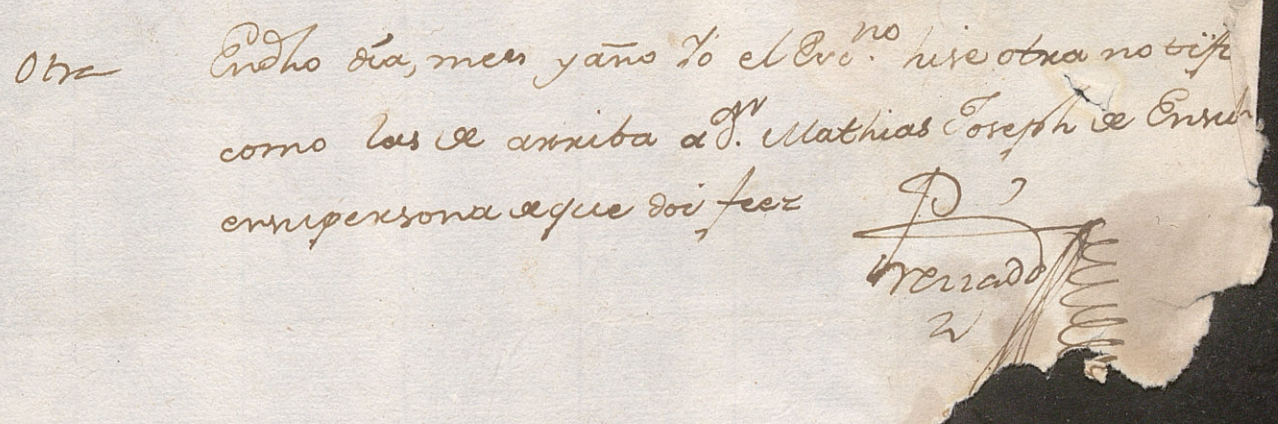 Otra
En dho día, mes y año Yo el Escno. hise otra notif
como las de arriba a Dn. Mathias Joseph de
en su persona de que doi feez